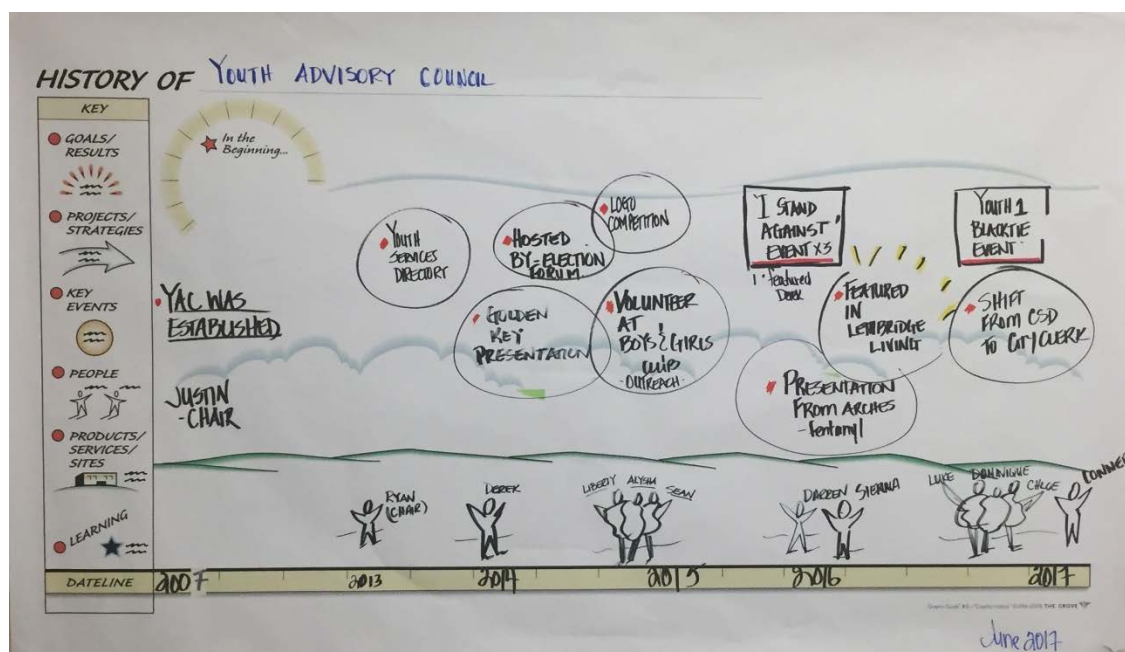 HISTORY OF YOUTH ADVISORY COUNCIL
KEY
GOALS/
RESULTS
PROJECTS/
STRATEGIES
KEY
EVENTS
PEOPLE
PRODUCTS/
SERVICES/
SITES
LEARNING
DATELINE
In the
Beginning...
YAC WAS
ESTABLISHED
JUSTIN
-CHAIR
YOUTH
SERVICES
DIRECTORY
HOSTED
BY-ELECTION
FORUM
LOGO
COMPETITION
GOLDEN
KEY
PRESENTATION
VOLUNTEER
AT
BOYS & GIRLS
CLUB
-OUTREACH-
I STAND
AGAINST
EVENT X3
Featured
Derek
FEATURED
IN
LETHBRIDGE
LIVING
PRESENTATION
FROM ARCHES
-fentanyl
YOUTH 1
BLACKTIE
EVENT
SHIFT
FROM CSD
TO CITY CLERK
RYAN
(CHAIR)
DEREK
LIBERTY ALYSHA
SEAN
DARREN SIERRA
LUKE DOMINIQUE
CHLOE
CONNER
2007 2013 2014 2015 2016 2017
THE GROVE
June 2017